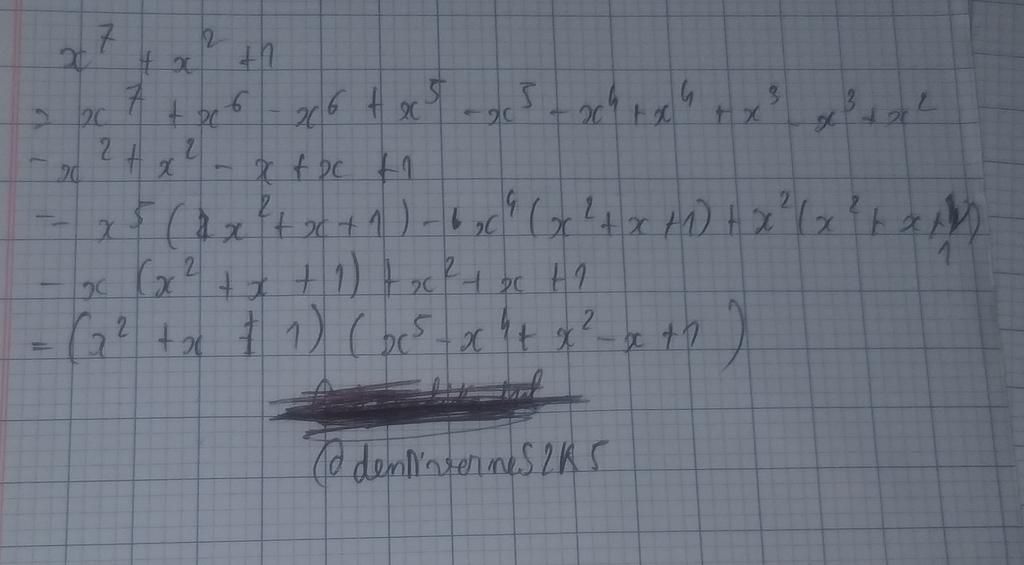 x⁷ + x² + 1
= x⁷ + x⁶ - x⁶ + x⁵ - x⁵ - x⁴ + x⁴ + x³ - x³ + x²
- x² + x² - x + x + 1
= x⁵ (x² + x + 1) - x⁴ (x² + x + 1) + x² (x² + x + 1)
- x (x² + x + 1) + x² + x + 1
= (x² + x + 1) (x⁵ - x⁴ + x² - x + 1)